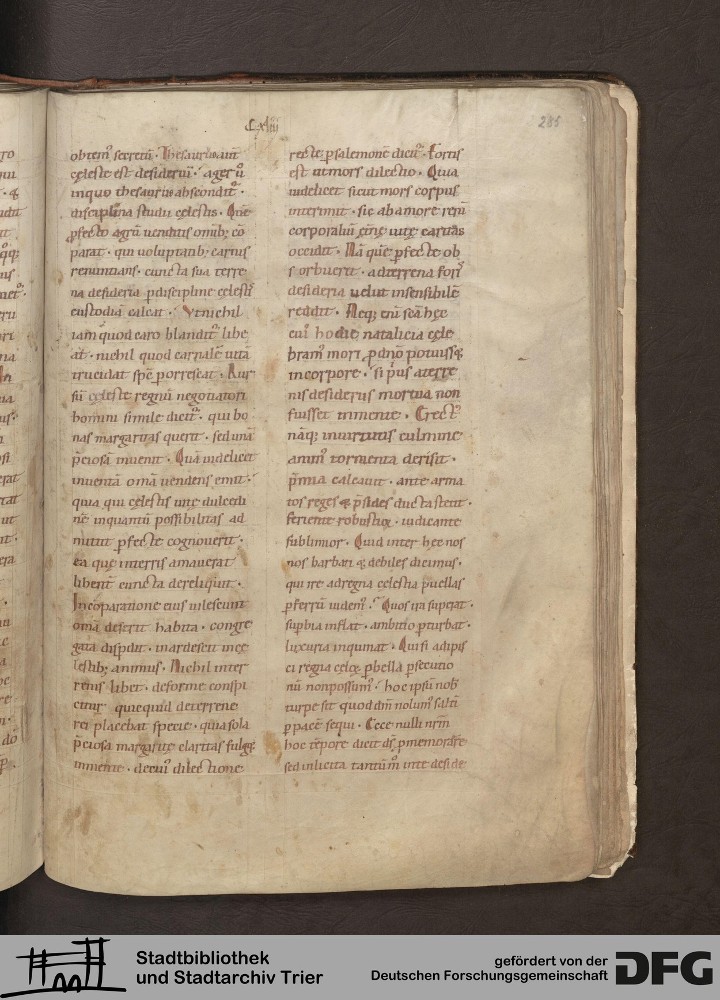 Cxliii
285
obtem᷒ secretū · Thesaurus aūt
cęleste est desideriū · ager ů
inquo thesaurus absconditᷣ ·
disciplina studii cęlestis · Quē
ꝓfecto agrū uenditis omnibꝫ cō
parat · qui uoluptatibꝫ carnis
renuntians · cuncta sua terre
na desideria p discipline cęlestis
custodiā calcat · Vt nichil
iam quod caro blanditᷣ libe
at · nichil quod carnalē uitā
trucidat spc̄ perhorrescat · Rur
sū cęleste regnū negotiatori
homini simile dicitᷣ · qui bo
nas margaritas querit · sed unā
p̄ciosā inuenit · Quā uidelicet
inuentā omīa uendens emit ·
quia qui cęlestis uitę dulcedi
nē inquantū possibilitas ad
mittit ꝑfecte cognouerit ·
ea quę interris amauerat
libent᷒ cuncta derelinquit ·
Incōparatione eius uilescunt
omīa deserit habita · congre
gata dispdit · inardescit incę
lestibꝫ animus · Nichil inter
renis libet · deforme conspi
citur quicquid deterrene
rei placebat specie · quia sola
p̄ciosa margaritę claritas fulget
inmente · decuiꝰ dilectione
recte ꝑ salemonē dicitᷣ · Fortis
est ut mors dilectio · Quia
uidelicet sicut mors corpus
interimit · sic ab amore rerū
corporaliū ęternę uitę caritas
occidit · Nā quē ꝑfecte ob
sorbuerit · adterrena foris
desideria uelut insensibilē
reddit · Neqꝫ eni᷒ scā hęc
cuiꝰ hodie natalicia cele
bram᷒ mori ꝓ dn̄o potuissꝫ
incorpore · si prius aterre
nis desideriis mortua non
fuisset inmente · Erectꝰ
nāqꝫ inuirtutis culmine
animꝰ tormenta derisit ·
p̄mia calcauit · ante arma
tos reges & p̄sides ducta stetit ·
feriente robustior · iudicante
sublimior · Quid inter hęc nos
nos barbati & debiles dicimus ·
qui ire adregna celestia puellas
ꝑ ferrū uidem᷒ · Quos ira superat ·
supbia inflat · ambitio pturbat ·
luxuria inquinat · Qui si adipis
ci regna cęlorꝫ ꝑ bella ꝑsecutio
nū non possum᷒ · hoc ipsū nobis
turpe sit quod dm̄ nolum᷒ saltī
ꝑ pacē sequi · Ecce nulli nrm̄
hoc tēpore dicit ds̄ ꝓme morere
sed inlicita tantūm inte deside
Stadtbibliothek
und Stadtarchiv Trier
gefördert von der
Deutschen Forschungsgemeinschaft
DFG